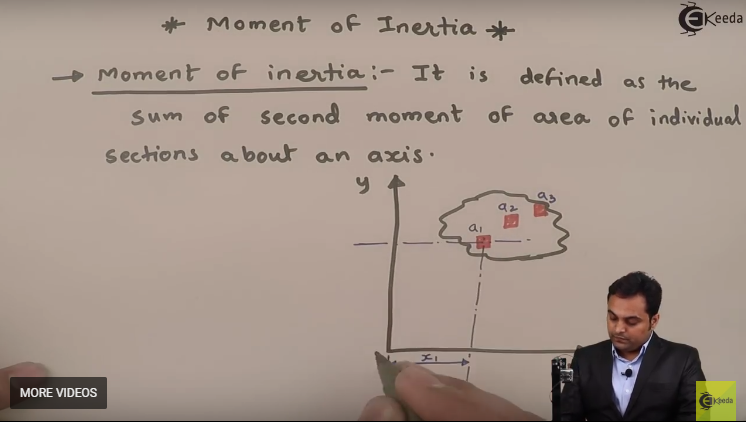 * Moment of Inertia *
Ekeeda
→ Moment of inertia :- It is defined as the
sum of second moment of area of individual
sections about an axis.
y
a3
a2
a1
x1
MORE VIDEOS
Ekeeda